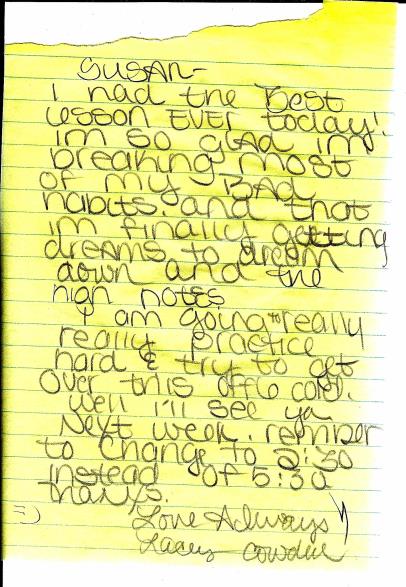 SUSAN-
I had the Best
lesson EVER today!
im so glad im
breaking most
of my BAD
habits. and that
im finally getting
dreams to dream
down and the
high notes
I am going to really
really practice
hard & try to get
over this offle cold.
Well I'll see ya
Next week. remnber
to change to 2:30
instead of 5:30
thanxs.
Love Always
=)
Lacey Cowden